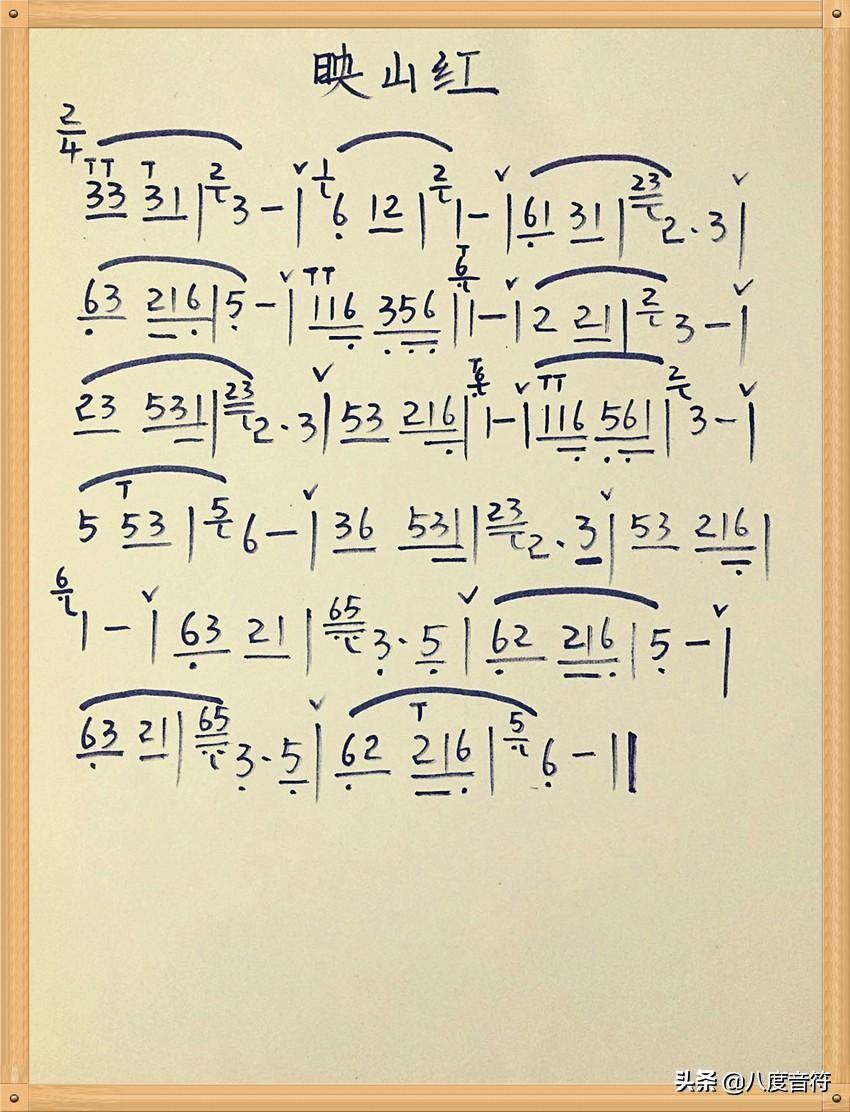 映山红
2/4
33 31 | 2 3 - | 1 6 12 | 2 1 - | 61 31 | 23 2·3 |
63 216 | 5 - | 116 356 | 6 1 - | 2 21 | 2 3 - |
23 531 | 23 2·3 | 53 216 | 6 1 - | 116 561 | 2 3 - |
5 53 | 5 6 - | 36 531 | 23 2·3 | 53 216 |
6 1 - | 63 21 | 65 3·5 | 62 216 | 5 - |
63 21 | 65 3·5 | 62 216 | 5 6 - ||
头条 @八度音符